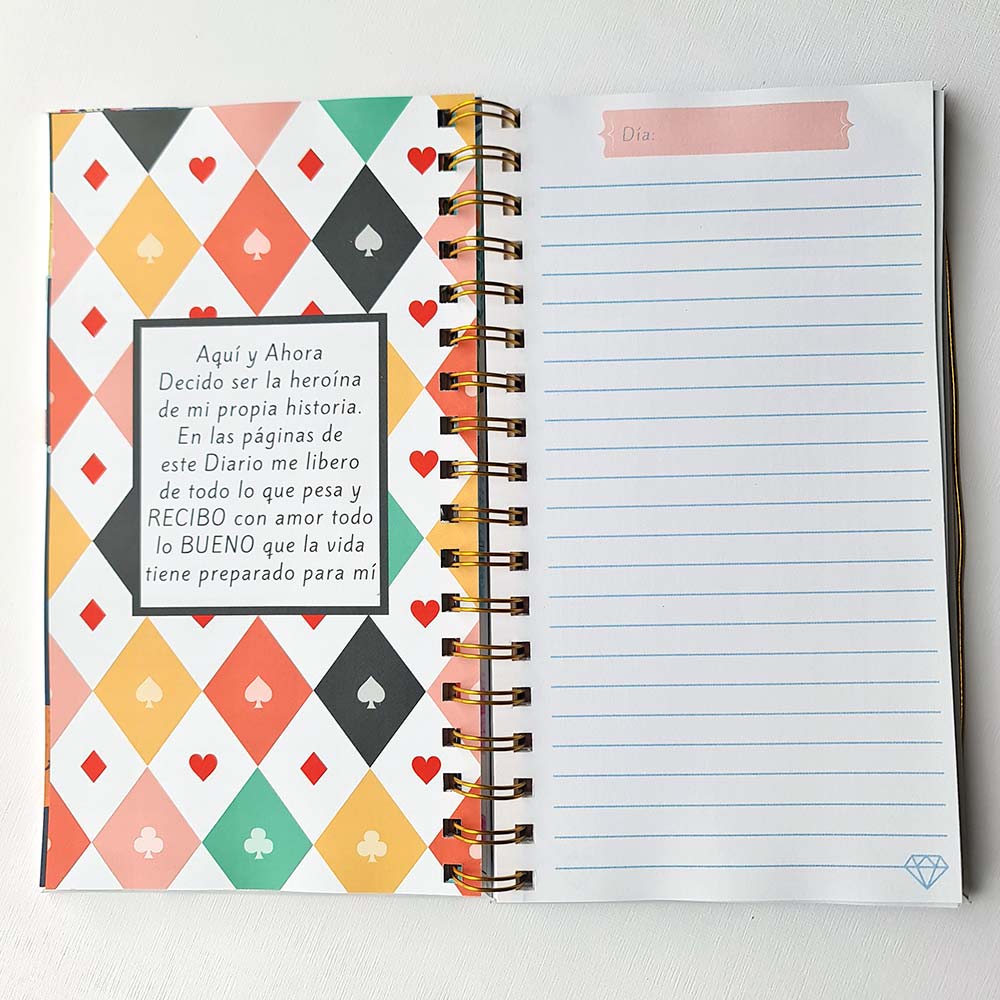 Aquí y Ahora
Decido ser la heroína
de mi propia historia.
En las páginas de
este Diario me libero
de todo lo que pesa y
RECIBO con amor todo
lo BUENO que la vida
tiene preparado para mí
Día: